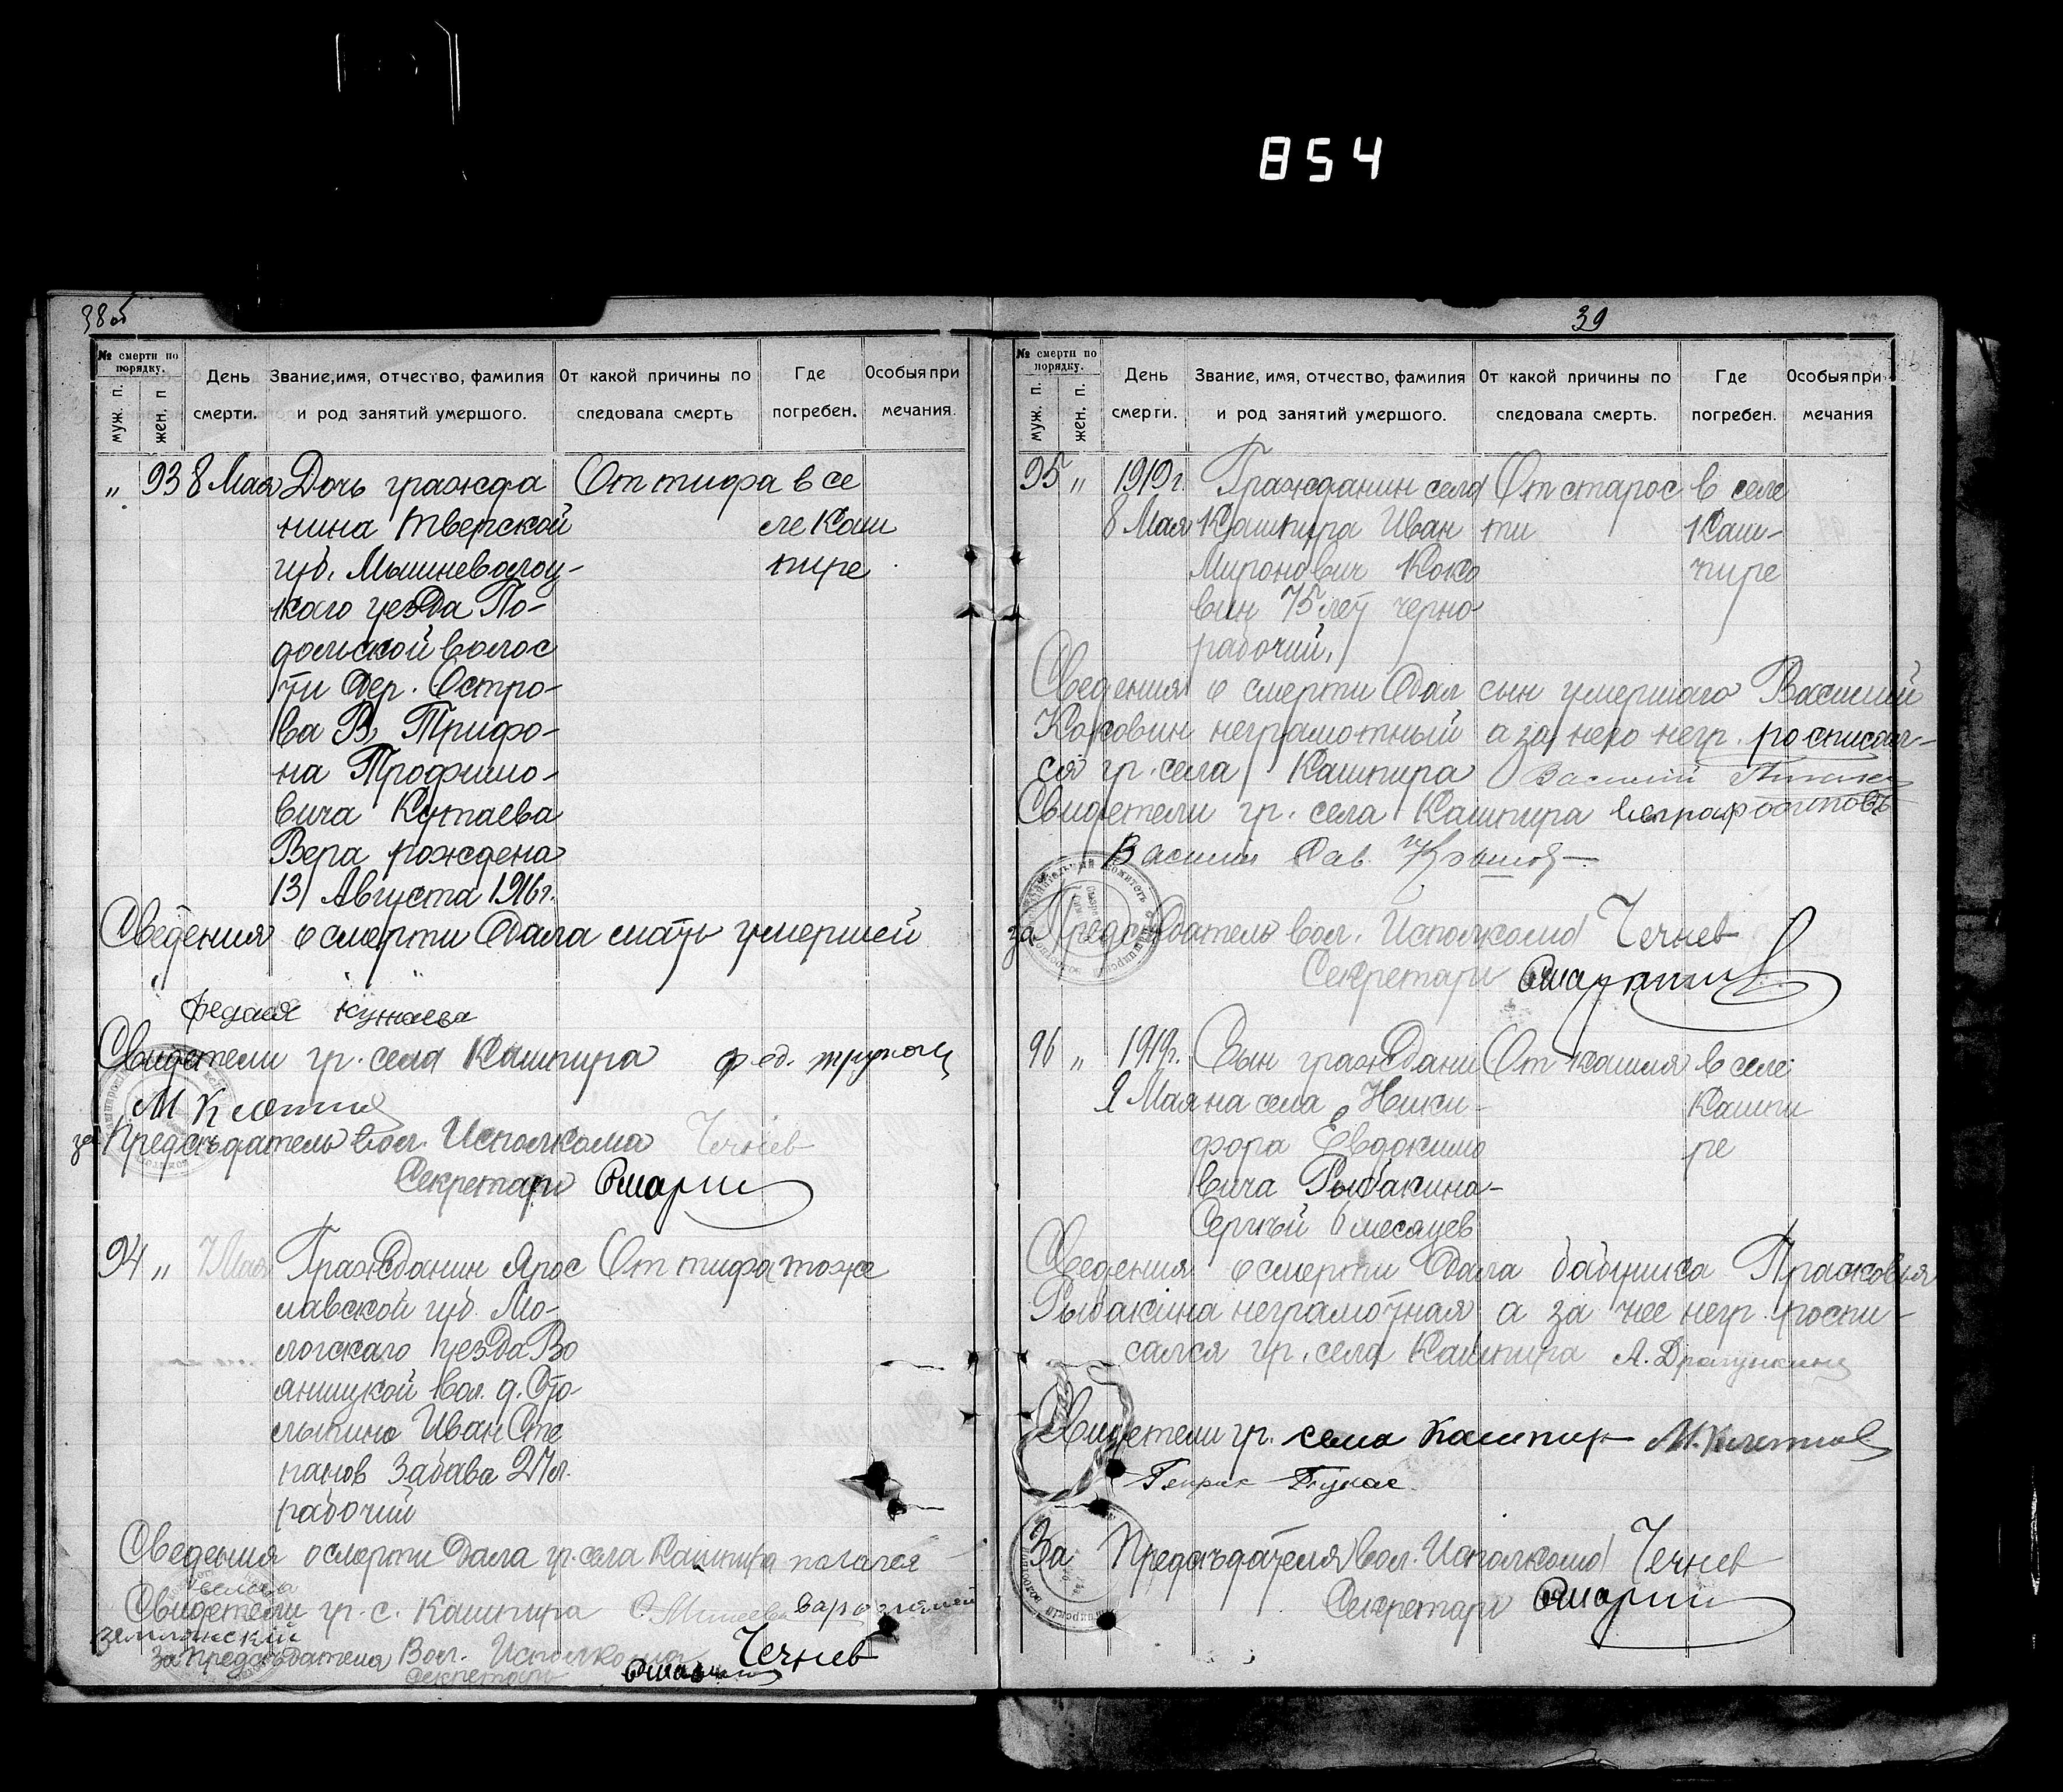 854
38об
№ смерти по порядку.
муж. п.
жен. п.
День смерти.
Звание, имя, отчество, фамилия и род занятий умершого.
От какой причины по следовала смерть
Где погребен.
Особыя при мечания.
„ 93 8 Мая Дочь гражда От тифа в се
нина Тверской ле Каш
губ. Мышневолоц- пире
каго уезда По-
дольской волос
ти дер. Остро-
ва В, Трифо-
на Трофимо-
вича Кунаева
Вера рождена
13 Августа 1916 г.
Сведения о смерти Дала мать умершей
Кунаева
Свидетели гр. села Кашпира
за Председатель Вол. Исполкома Чернев
Секретарь
94 „ 7 Мая Гражданин Ярос От тифа тоже
лавской губ. Мо-
логскаго уезда Во
яницкой вол. д.
Иван Сте
панов Забава 27 л.
рабочий
Сведения о смерти Дала гр. села Кашпира
Свидетели гр. с. Кашпира
За Председателя Вол. Исполкома Чернев
Секретарь
39
№ смерти по порядку.
муж. п.
жен. п.
День смерти.
Звание, имя, отчество, фамилия и род занятий умершого.
От какой причины по следовала смерть.
Где погребен.
Особыя при мечания
95 „ 1919 г. Гражданин села От старос в селе
8 Мая Кашпира Иван ти Каш-
Миронович Коко пире
вин 75 лет черно
рабочий,
Сведения о смерти Дал сын умершаго Василий
Коковин неграмотный а за него негр. росписал-
ся гр. села Кашпира Василий
Свидетели гр. села Кашпира
Василий
за Председатель вол. Исполкома Чернев
Секретарь
96 „ 1919 г. Сын граждани От кашля в селе
Мая на села Ники- Кашпи
фора Евдокимо ре
вича Рыбакина-
Сергъй 6 месяцев
Сведения о смерти Дала бабушка Прасковья
Рыбакина неграмотная а за нее негр. роспи-
сался гр. села Кашпира А. Драгункинъ
Свидетели гр. села Кашпир
За Председателя вол. Исполкома Чернев
Секретарь